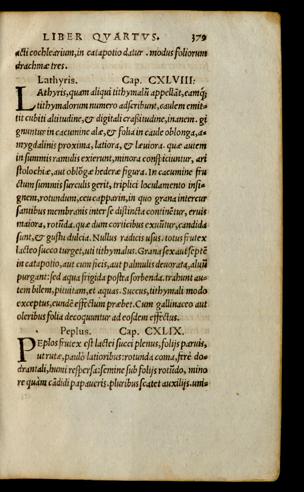 LIBER QVARTVS. 379
acti cochlearium, in catapotio datur. modus foliorum
drachmæ tres.
Lathyris. Cap. CXLVIII:
LAthyris, quam aliqui tithymalũ appellãt, eamq;
tithymalorum numero adscribunt, caulem emit-
tit cubiti altitudine, & digitali crassitudine, inanem. gi
gnuntur in cacumine alæ, & folia in caule oblonga, a-
mygdalinis proxima, latiora, & læuiora. quæ autem
in summis ramulis exierunt, minora conspiciuntur, ari
stolochiæ, aut oblõgæ hederæ figura. In cacumine fru
ctum summis surculis gerit, triplici loculamento insi-
gnem, rotundum, ceu capparin, in quo grana intercur
santibus membranis inter se distincta continẽtur, eruis
maiora, rotũda. quæ dum corticibus exuũtur, candida
sunt, & gustu dulcia. Nullus radicis usus. totus frutex
lacteo succo turget, uti tithymalus. Grana sex aut septẽ
in catapotio, aut cum ficis, aut palmulis deuorata, aluũ
purgant: sed aqua frigida postra sorbenda. trahunt au-
tem bilem, pituitam, et aquas. Succus, tithymali modo
exceptus, eundẽ effectum præbet. Cum gallinaceo aut
oleribus folia decoquuntur ad eosdem effectus.
Peplus. Cap. CXLIX.
PEplos frutex est lactei succi plenus, folijs paruis,
ut rutæ, paulò latioribus: rotunda coma, ferè do-
drantali, humi respersa: semine sub folijs rotũdo, mino
re quàm cãdidi papaueris. pluribus scatet auxilijs. uni-